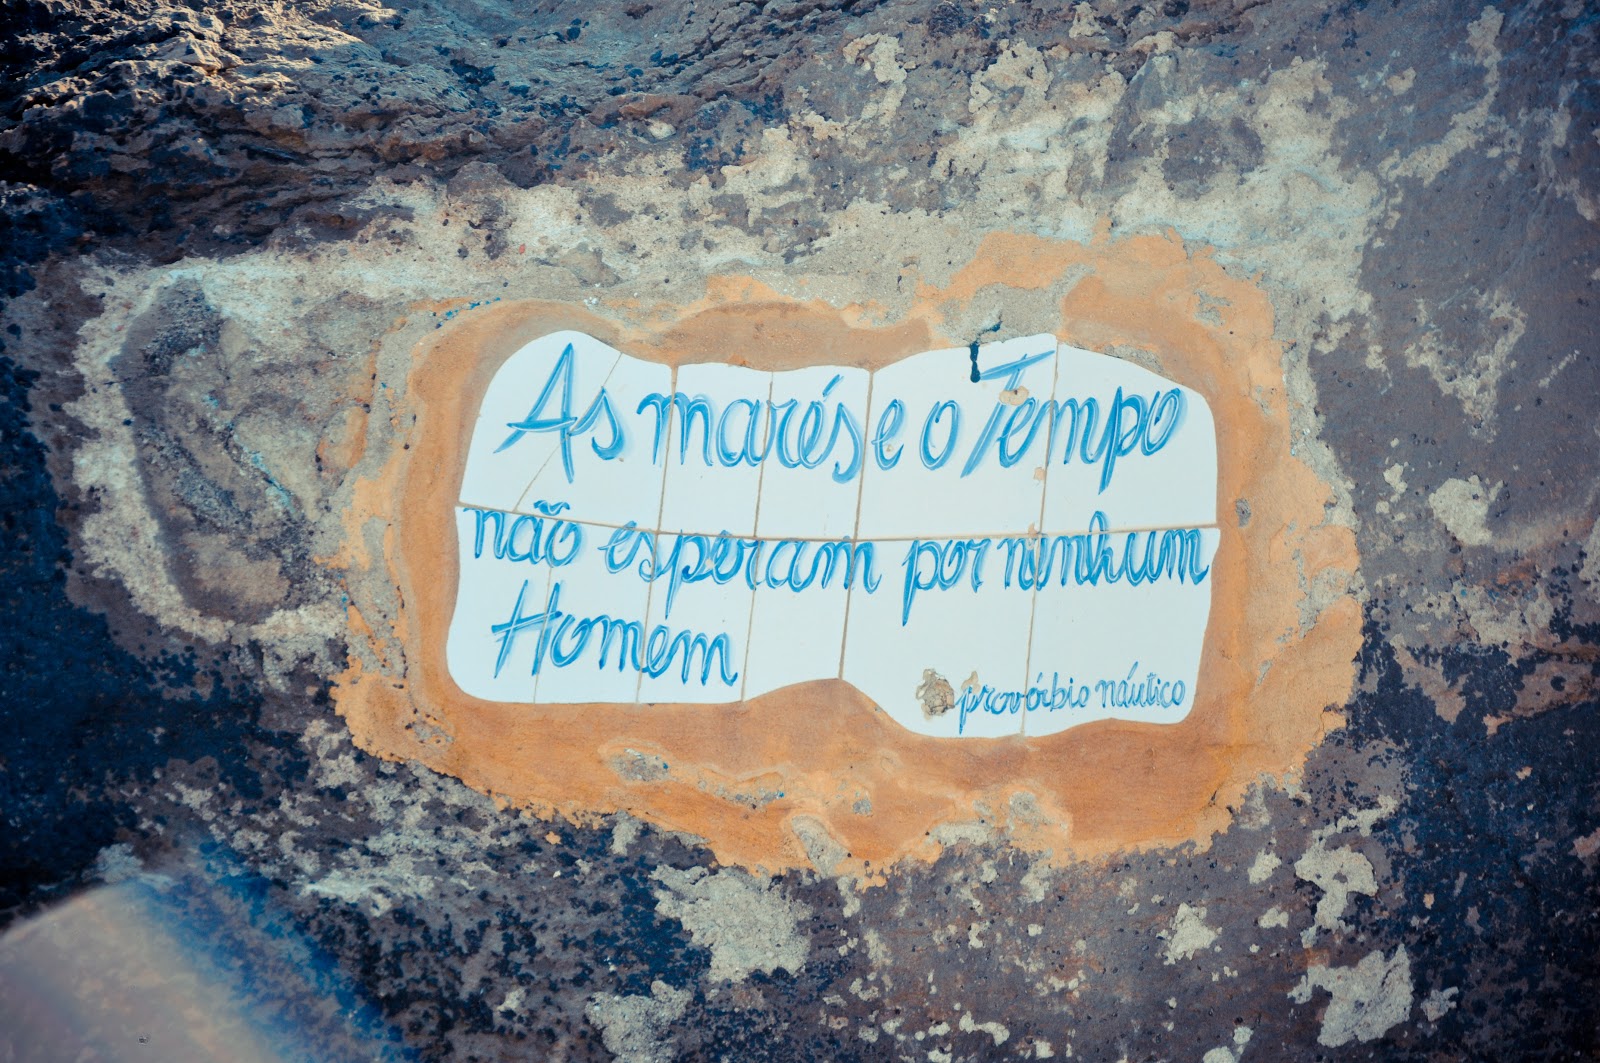 As marés e o Tempo
não esperam por nenhum
Homem
provérbio náutico